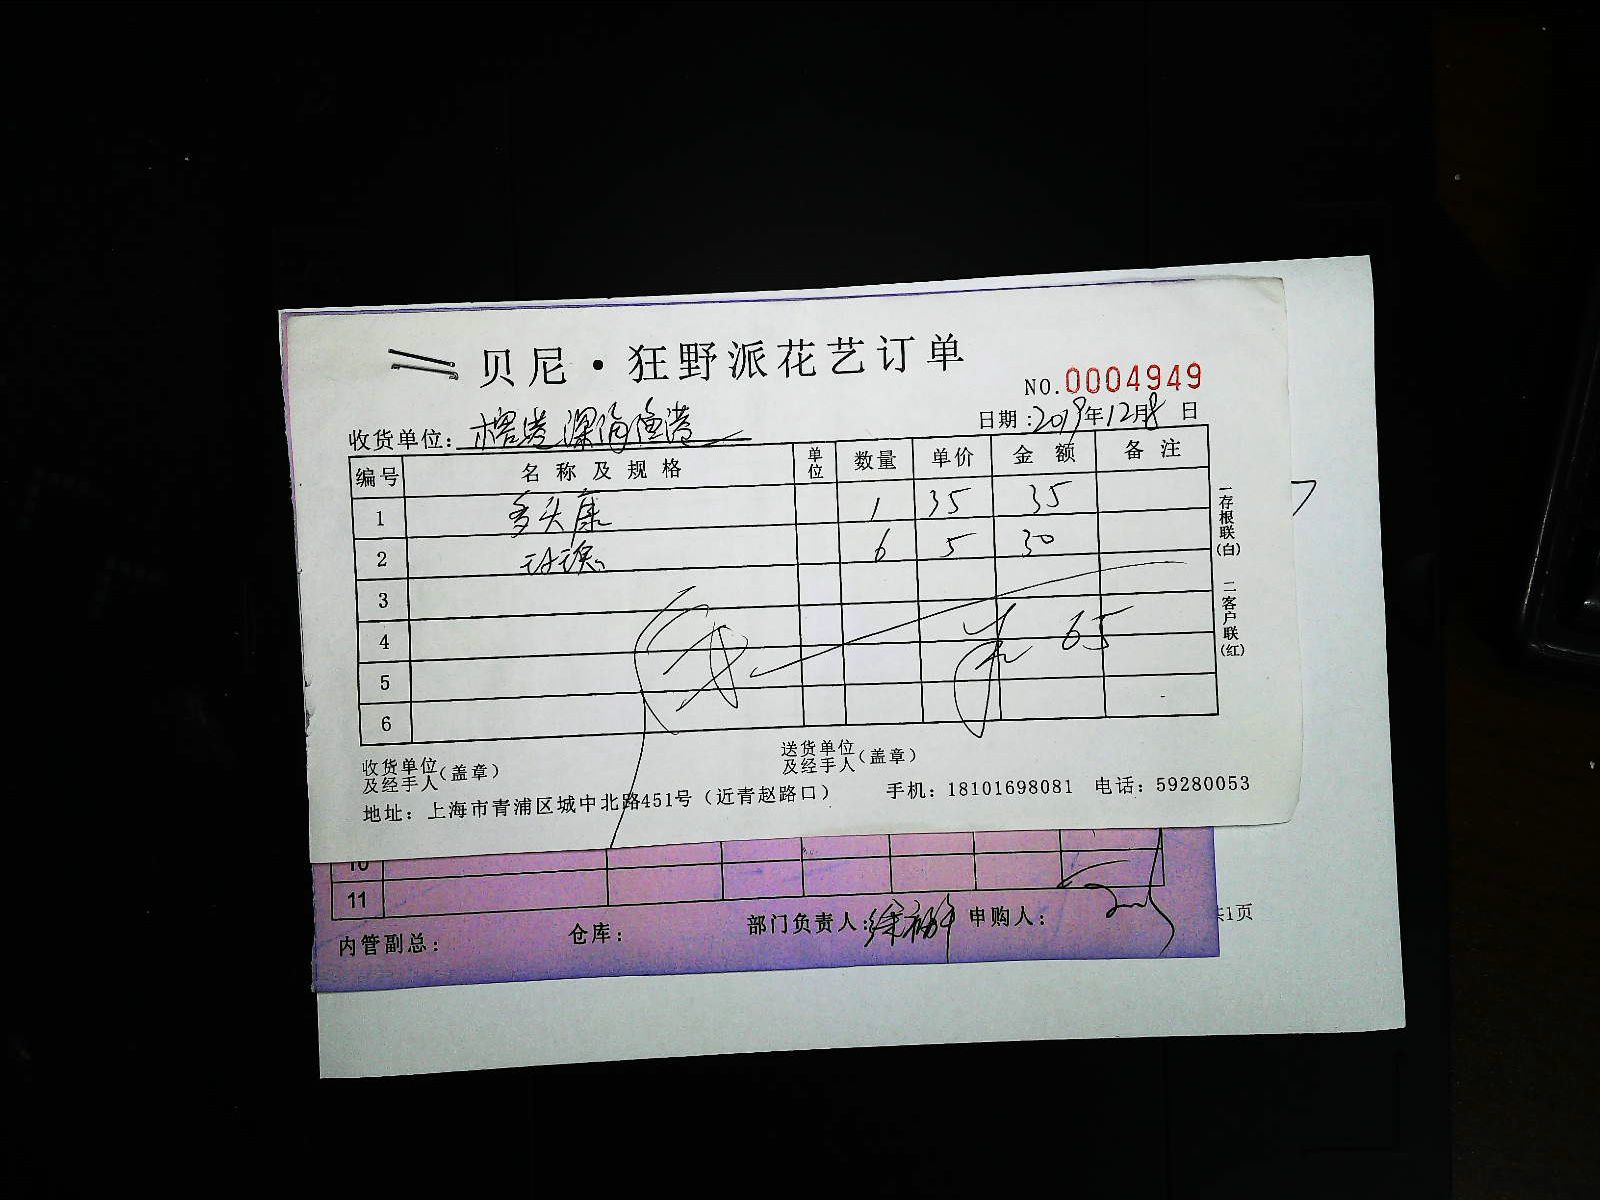 贝尼·狂野派花艺订单
NO.0004949
收货单位: 深海渔港
日期:2019年12月8日
编号 名称及规格 单位 数量 单价 金额 备注
1 多头康 1 35 35
2 玫瑰 6 5 30
3
4 65
5
6
一存根联(白) 二客户联(红)
收货单位及经手人(盖章) 送货单位及经手人(盖章)
地址: 上海市青浦区城中北路451号(近青赵路口) 手机: 18101698081 电话: 59280053
10
11
内管副总: 仓库: 部门负责人: 申购人:
共1页